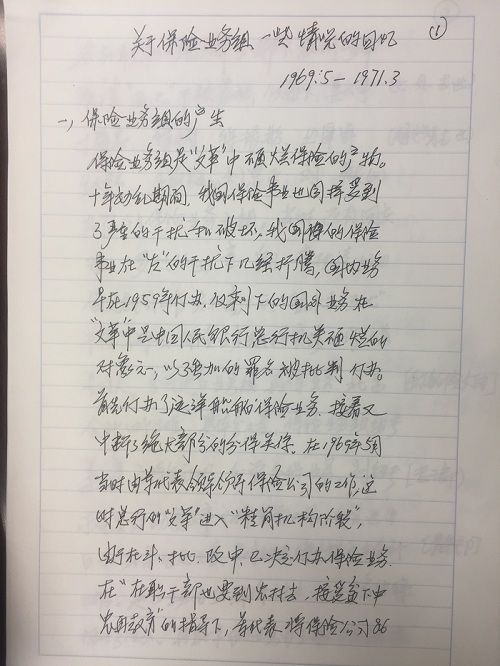 关于保险业务组一些情况的回忆 ①
1969.5—1971.3
一、保险业务组的产生
保险业务组是“文革”中砸烂保险的产物。
十年动乱期间，我国保险事业也同样受到
了严重的干扰和破坏。我国的保险
事业在“左”的干扰下几经折腾，国内业务
早在1959年停办，仅剩下的国外业务在
“文革”中是中国人民银行总行机关砸烂的
对象之一，以强加的罪名被批判停办。
首先停办了远洋船舶保险业务，接着又
中断了绝大部份的分保关系。在1969年5月
当时由军代表领导保险公司的工作，这
时总行的“文革”进入“精简机构阶段”，
由于在斗、批、改中，已决定停办保险业务，
在“在职干部也要到农村去，接受贫下中
农再教育”的指导下，军代表将保险公司86